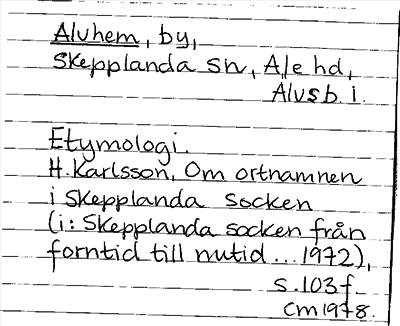 Alvhem, by,
Skepplanda sn, Ale hd,
Älvsb. l.
Etymologi.
H. Karlsson, Om ortnamnen
i Skepplanda socken
(i: Skepplanda socken från
forntid till nutid ... 1972),
s. 103 f.
CM 1978.